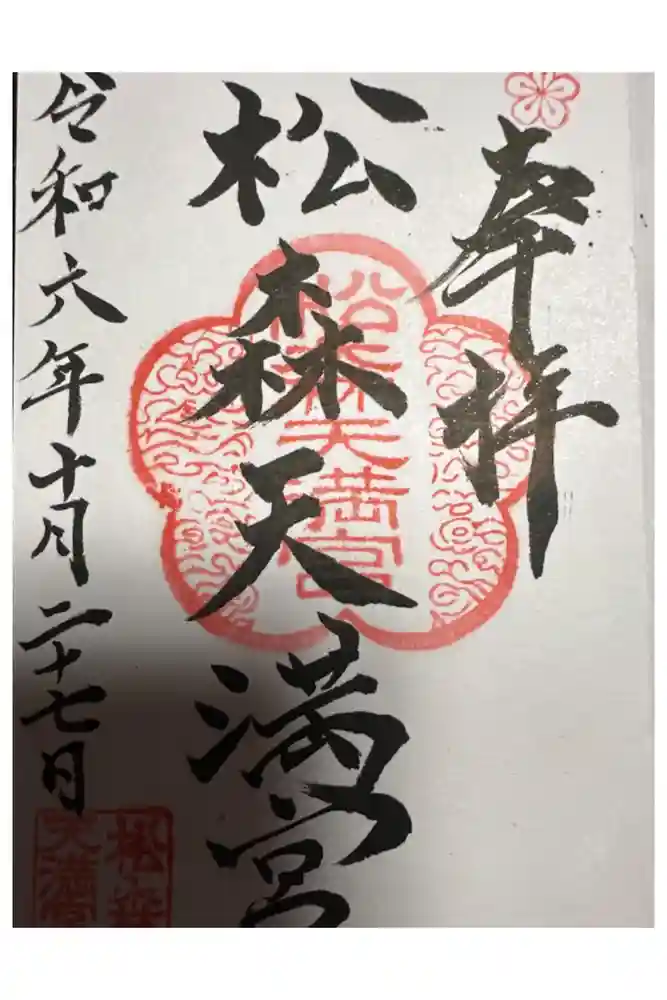 奉拝
松森天満宮
松森天満宮
令和六年十月二十七日
松森
天満宮